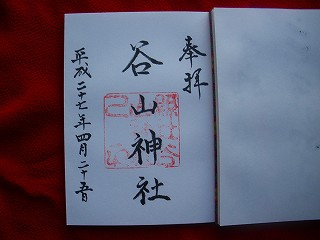 奉拝
谷山神社
平成二十七年四月二十五日